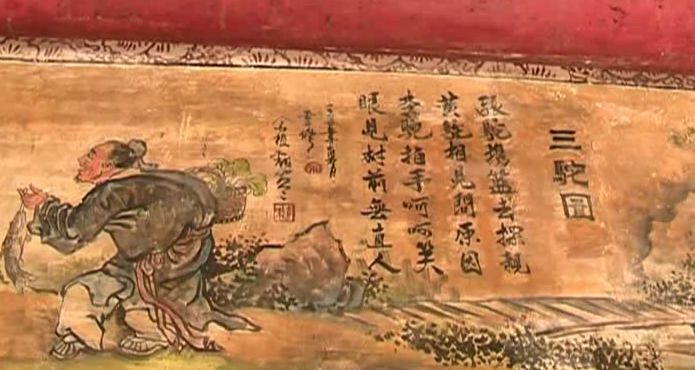 三駝圖
張駝携籃去探親
黃駝相見問原因
李駝拍手呵呵笑
眼見村前無直人